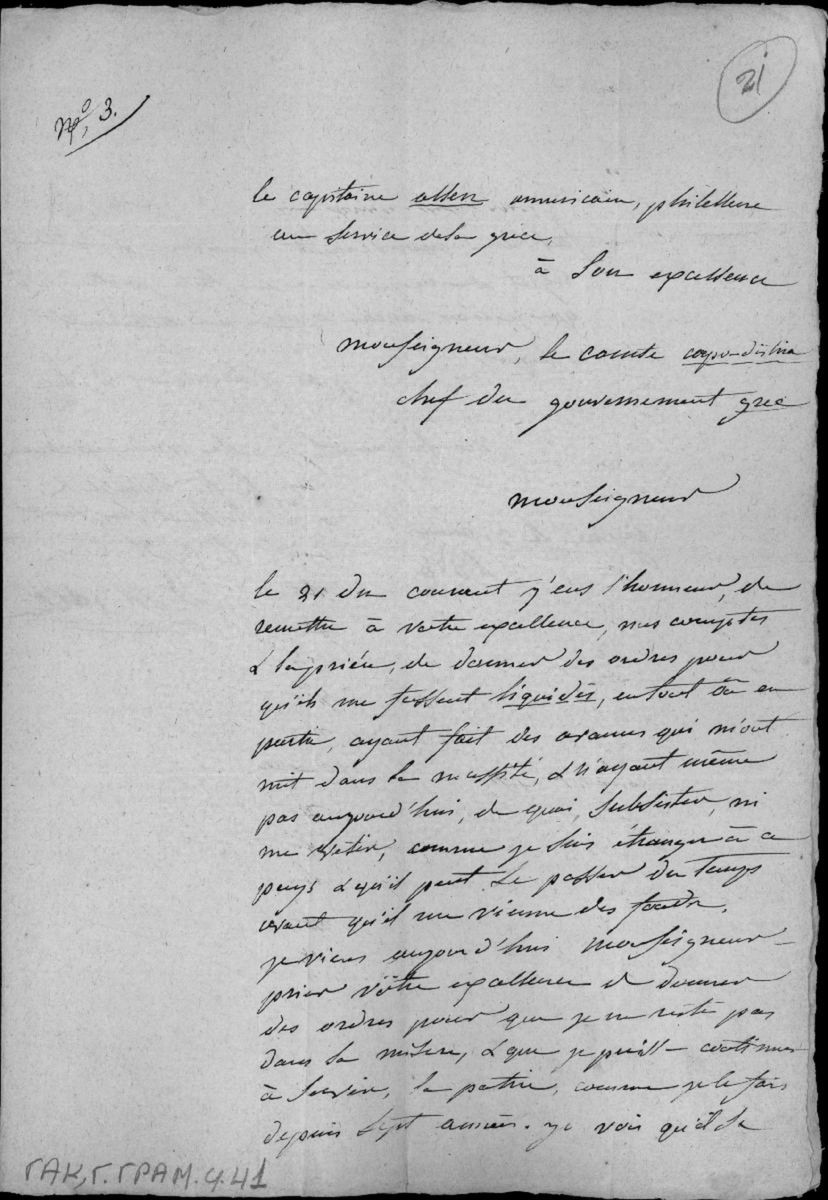 21
N.º 3.
le capitaine allen americain, philellene
au service de la grece,
à Son excellence
Monseigneur, le comte capo-distria
chef du gouvernement grec
Monseigneur
le 21 du courent j'eus l'honneur, de
remettre à votre excellence, mes comptes
& la priéu, de donner des ordres pour
qu'ils me fussent liquidés, en tout ou en
partie, ayant fait des avances qui m'ont
mit dans la nessité, & n'ayant même
pas aujourd'hui, de quoi, subsister, ni
me vetir, comme je suis étranger à ce
pays & qu'il peut Se passer du temps
avant qu'il me vienne des fonds.
je viens aujourd'hui Monseigneur
prier vôtre excellence de donner
des ordres pour que je ne reste pas
dans la misere, & que je puisse continuer
à Servir, la patrie, comme je le fais
depuis Sept années. je vois qu'il Se
ΓΑΚ, Γ. ΓΡΑΜ. φ. 41